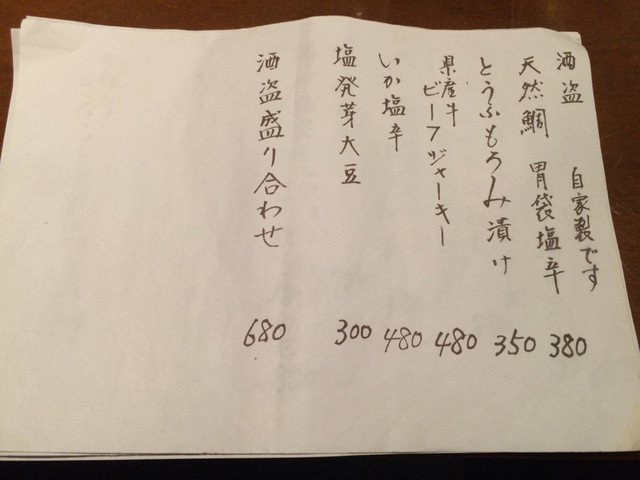 酒盗 自家製です
天然鯛 胃袋塩辛 380
とうふもろみ漬け 350
県産牛
ビーフジャーキー 480
いか塩辛 480
塩発芽大豆 300
酒盗盛り合わせ 680